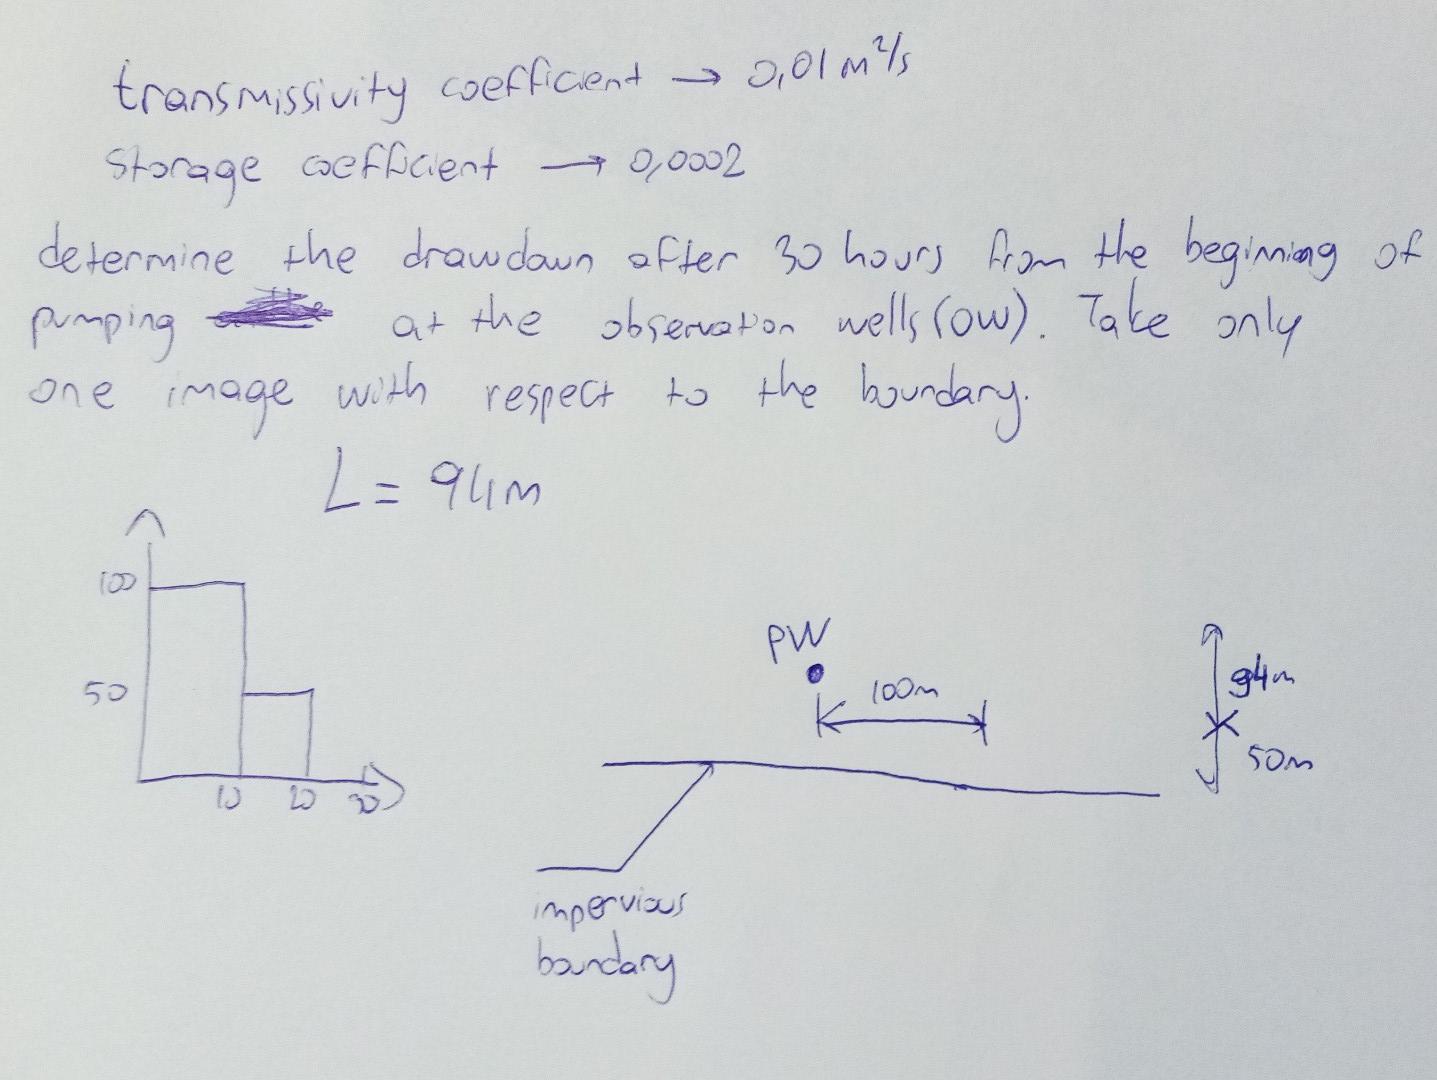 transmissivity coefficient → 0,01 m²/s
Storage coefficient → 0,0002
determine the drawdown after 30 hours from the beginning of
pumping at the observation wells (OW). Take only
one image with respect to the boundary.
L = 94m
100
50
10 20 30
PW
100m
94m
50m
impervious
boundary